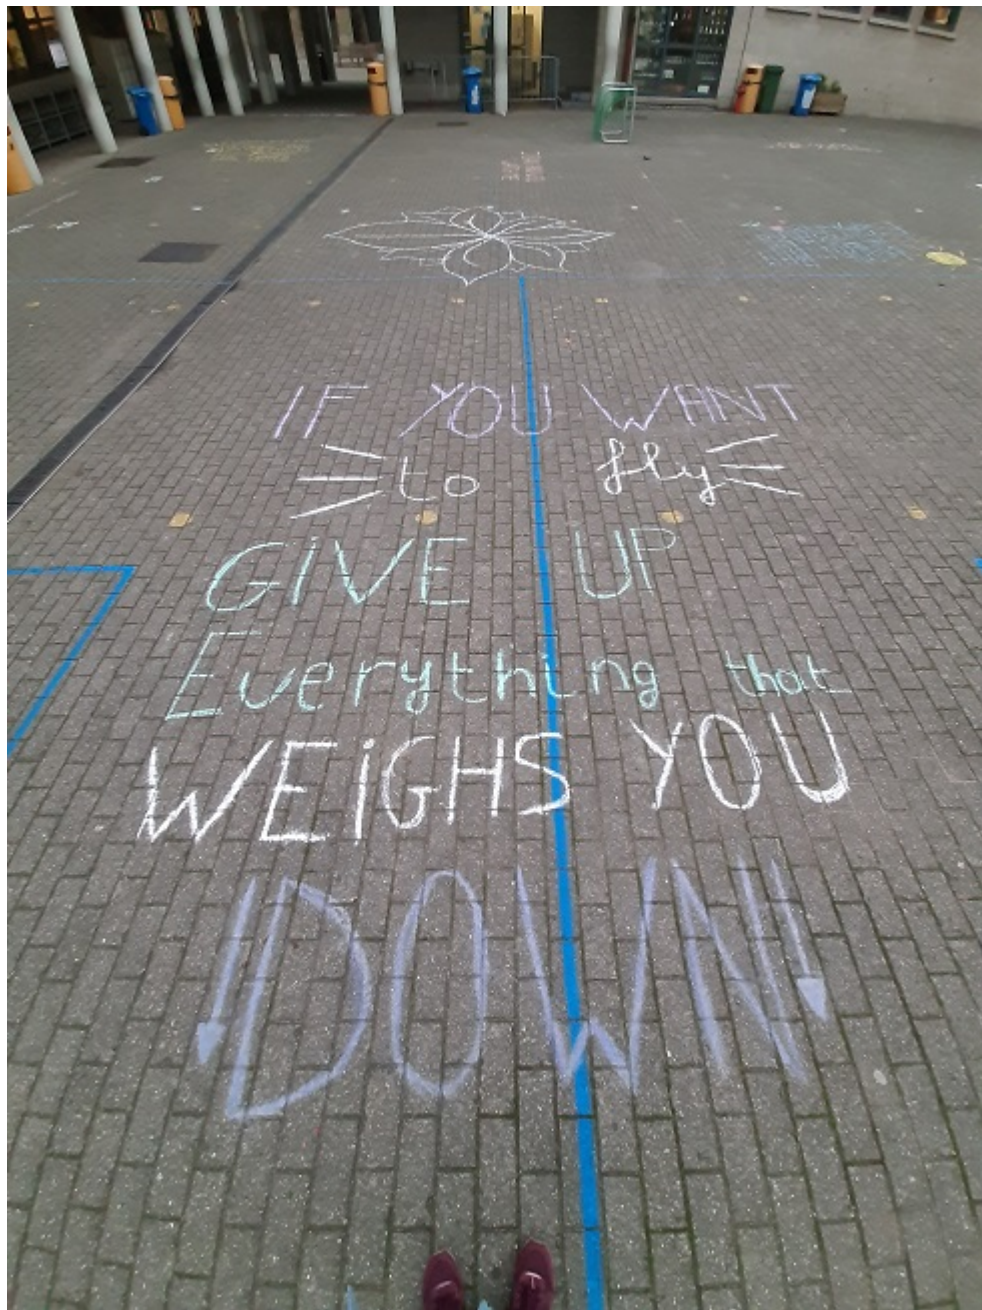 IF YOU WANT
to fly
GIVE UP
Everything that
WEIGHS YOU
DOWN